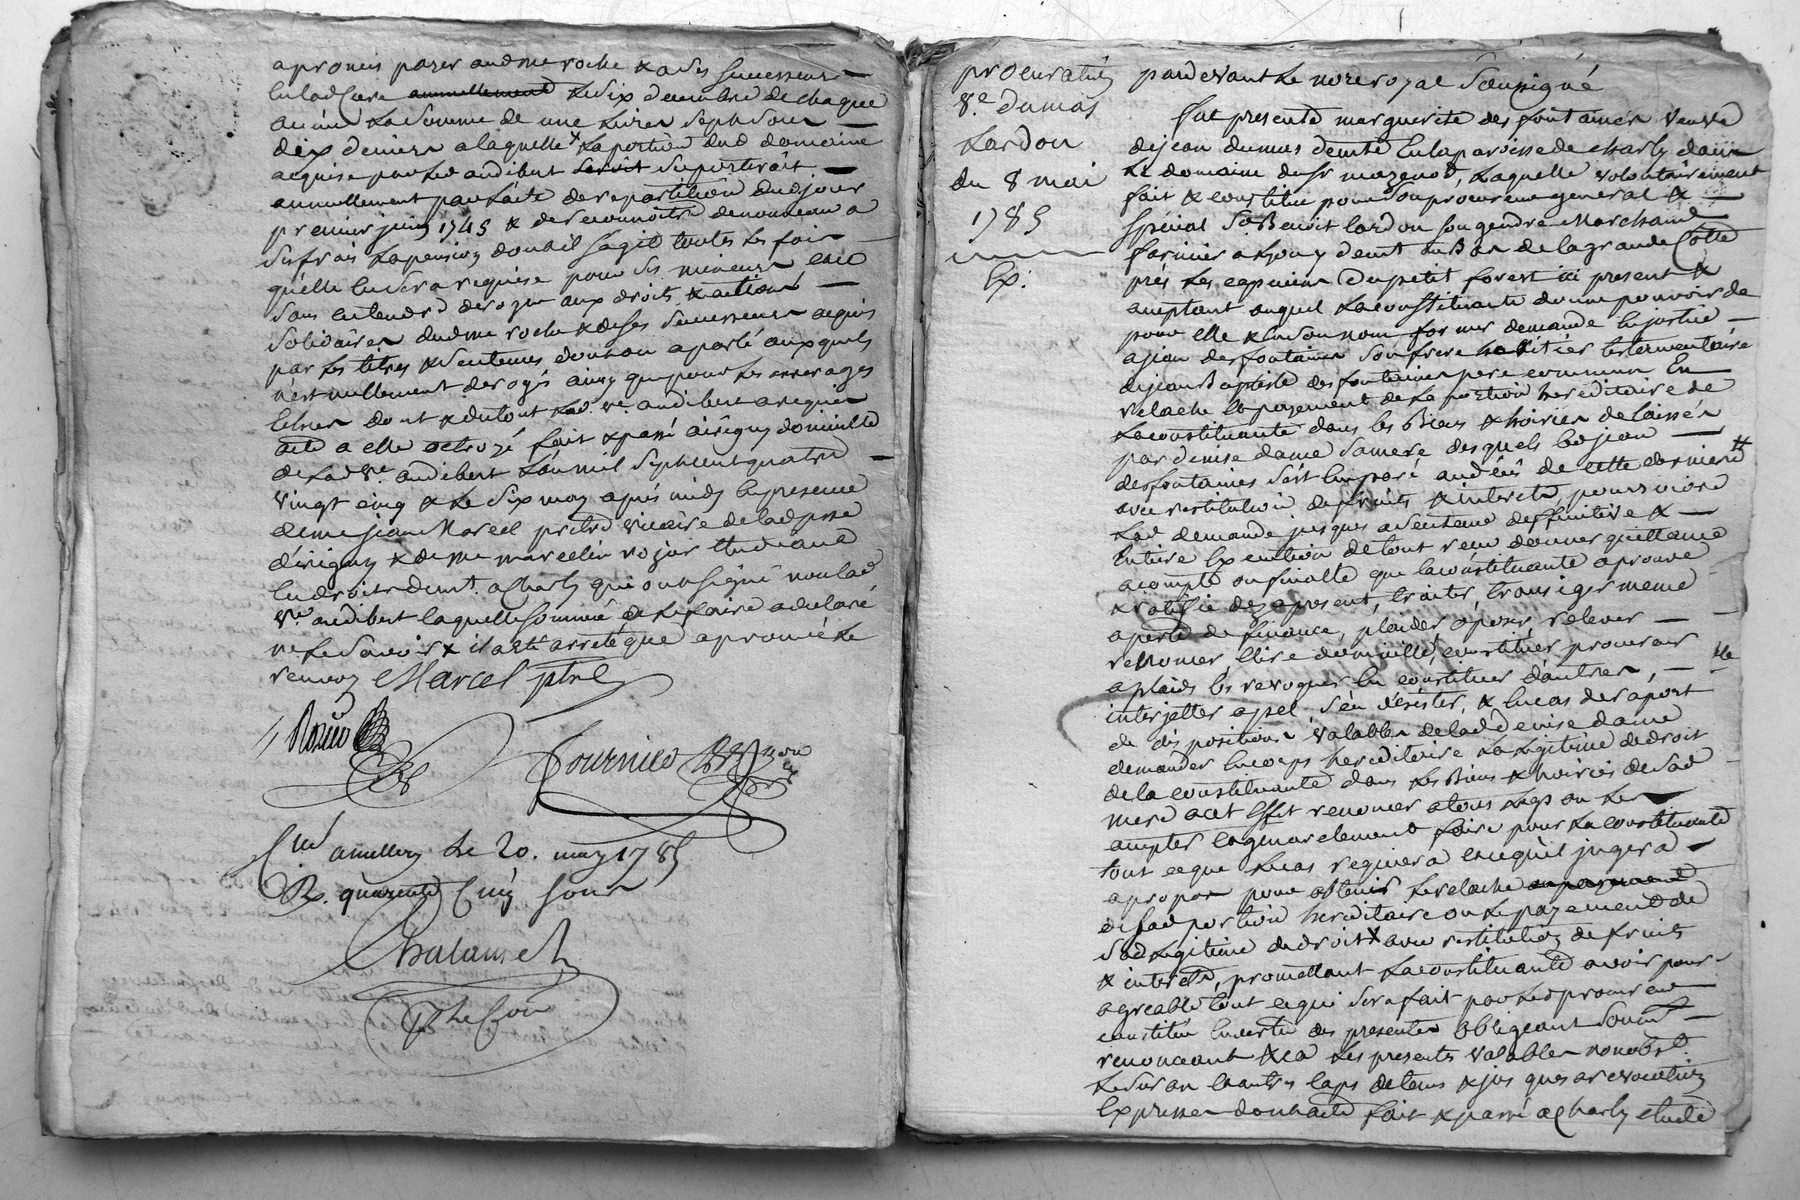 a promis payer aud me roche & a ses successeurs
en lad Cure annuellement le six decembre de chaque
année la somme de une livre sept sous
dix deniers a laquelle x la portion dud domaine
acquise par led audibert seroit suporteroit
annuellement par l'acte de repartition dud jour
premier juin 1745 & de reconnoitre de nouveau a
ses frais la pension dont il sagit toutes les fois
qu'elle en sera requise pour ses mineurs
sans entendre deroger aux droits & actions
solidaires dud me roche & de ses successeurs acquis
par les titres & sentences dont on a parlé auxquels
n'est nullement derogé ainsy que pour les arrerages
dont & du tout lad. ve. audibert a requis
acte a elle octroyé fait & passé a irigny domicille
de lad ve. audibert l'an mil sept cent quatre
vingt cinq & le six may après midy en presence
de me jean Marcel prêtre vicaire de lad psse
d'irigny & de me marcelin rozier etudiant
en droit demt. a Charly qui ont signé non lad
ve audibert laquelle sommée de le faire a declaré
ne le savoir x il a été arreté que aprouvé le
renvoy Marcel ptre
Rozier
Fournier
C.lé a milery le 20. may 1785
R. quarente cinq sous
Chalamel
procuration
Ve. dumas
Lardon
du 8 mai
1785
Ex:
pardevant le nore royal soussigné
fut presente marguerite des fontaines veuve
de jean dumas demte en la paroisse de charly dans
le domaine du sr mazenod, laquelle volontairement
fait & constitue pour son procureur general &
special sr Benoit lardon son gendre Marchand
farinier a Lyon y demt au Bas de la grande Cotte
près les capucins du petit forest ici present &
acceptant auquel la constituante donne pouvoir de
pour elle & en son nom former demande en justice
a jean desfontaines son frere heritier testamentaire
de jean Baptiste des fontaines pere commun En
relache & payement de la portion hereditaire de
la constituante dans les Biens & hoiries delaissés
par denise dame sa mere desquels led jean
desfontaines s'est emparé au décès de cette derniere #
avec restitution de fruits & interets, poursuivre
lad demande jusques a sentence deffinitive &
entiere execution de tout reçu donner quittance
a compte ou finalle que la constituante aprouve
& ratifie dez a present, traiter, transiger meme
a perte de finance, plaider, oposer, relever
renoncer, elire domicille, constituer procureur
a plaids les revoquer en constituer d'autres,
interjetter apel s'en desister, & en cas de raport
de dispositions valables de lad denise dame
demander en corps hereditaire la legitime de droit
de la constituante dans les Biens & hoirie de sad
mere a cet effet renoncer a tous legs ou les
accepter & generalement faire pour la constituante
tout ce que le cas requiera & ce qu'il jugera
a propos pour obtenir le relache ou payement
de sad portion hereditaire ou le payement de
sad legitime de droit x avec restitution de fruits
& interets, promettant la constituante avoir pour
agreable tout ce qui sera fait par led procureur
constitué en vertu des presentes obligeant soumt.
renonceant &ca les presentes valables nonobst.
le suran & autres laps de tems & jusques a revocation
expresse dont acte fait & passé a Charly etude